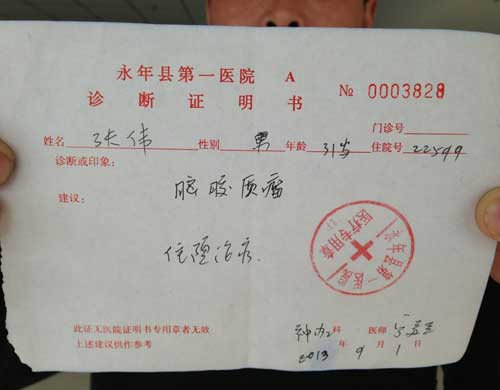 永年县第一医院 A
诊断证明书 № 0003828
门诊号
姓名 张伟 性别 男 年龄 31岁 住院号 22599
诊断或印象:
脑胶质瘤
建议:
住院治疗.
永年县第一医院
医疗专用章
此证无医院证明书专用章者无效
上述建议供作参考
神力2科 医师
2013年9月1日